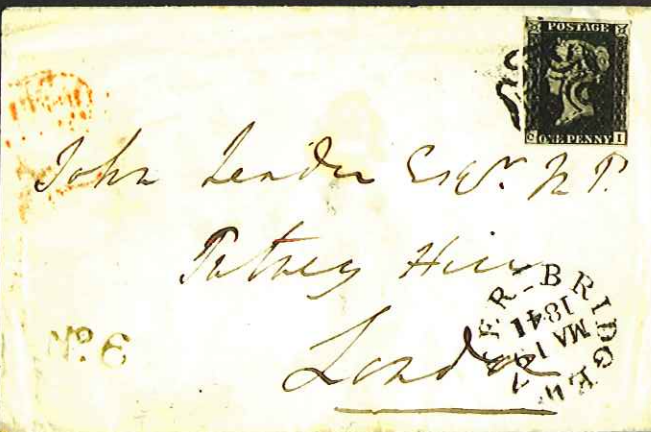 POSTAGE
C ONE PENNY I
John Leader Esqr. M.P.
Putney Hill
London
No. 6
BRIDGEWATER
MA 17
1841